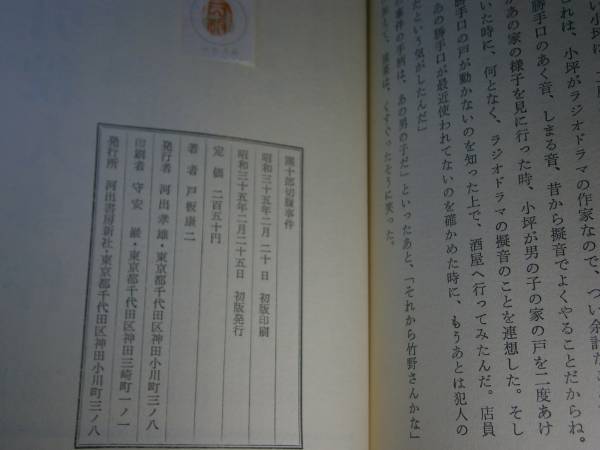 これは、小坪がラジオドラマの作家なので、つい余計だ
勝手口のあく音、しまる音、昔から擬音でよくやることだからね。
があの家の様子を見に行った時、小坪が男の子の家の戸を二度あけ
いた時に、何となく、ラジオドラマの擬音のことを連想した。そし
勝手口の戸が動かないのを知った上で、酒屋へ行ってみたんだ。店員
あの勝手口が最近使われてないのを確かめた時に、もうあとは犯人の
たという気がしたんだ」
事件の手柄は、あの男の子だ」といったあと、「それから竹野さんかな」
くすぐったそうに笑った。
團十郎切腹事件
昭和三十五年二月二十日 初版印刷
昭和三十五年二月二十五日 初版発行
定価 二百五十円
著者 戸板康二
発行者 河出孝雄・東京都千代田区神田小川町三ノ八
印刷者 守安巌・東京都千代田区神田三崎町一ノ一
発行所 河出書房新社・東京都千代田区神田小川町三ノ八